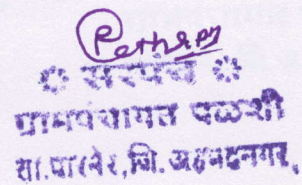 सरपंच
ग्रामपंचायत पळशी
ता.पारनेर, जि. अहमदनगर,